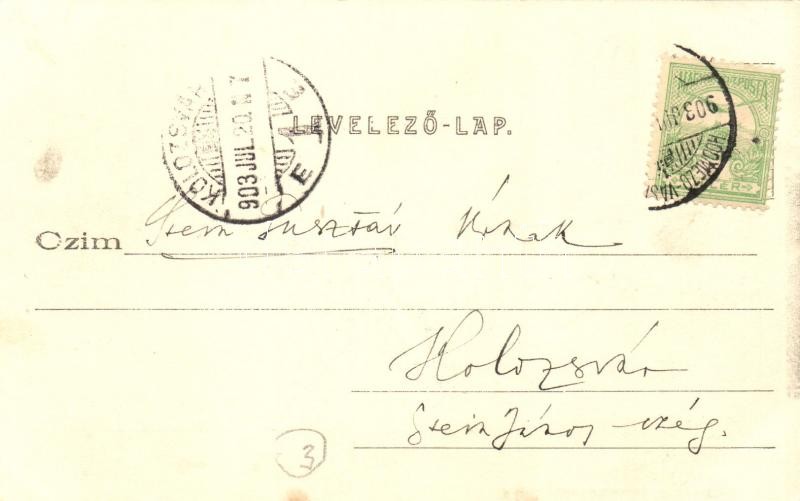 LEVELEZŐ-LAP.
KOLOZSVÁR
903 JUL. 20. N 7
MAGYAR KIR. POSTA
903 JUL
HÓDMEZŐ-VÁSÁ
Czim Stein Gusztáv Urnak
Kolozsvár
Stein János czég.
3